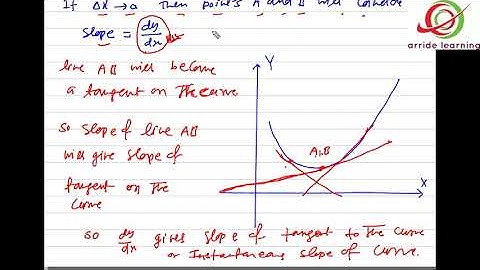 If Δx → a Then points A and B will coincide
Slope = dy/dx
arride learning
line AB will become
a tangent on The curve
so slope of line AB
will give slope of
tangent on The
curve
Y
A,B
X
so dy/dx gives slope of tangent to The curve
or Instantaneous slope of curve.